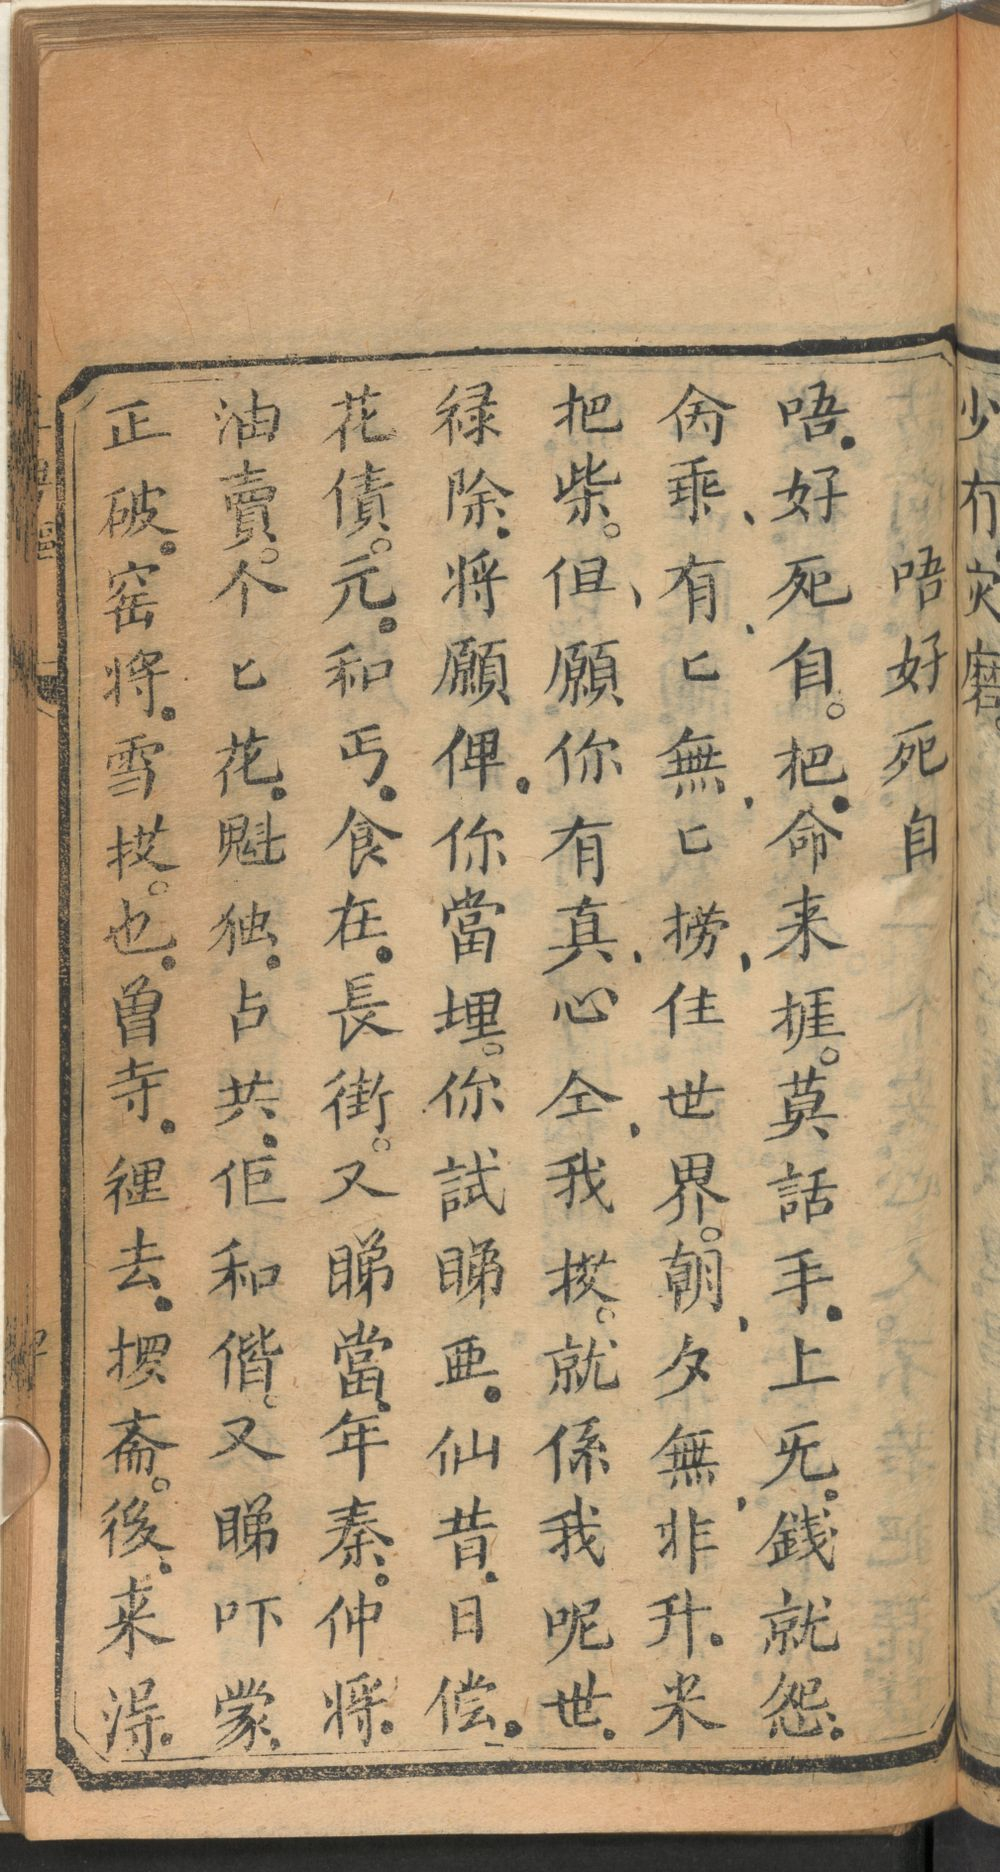 少冇灾磨。
唔好死自
唔好死自。把命来捱。莫話手上旡銭就怨
命乖有匕無匕捞住世界。朝夕無非升米
把柴。但願你有真心全我挨。就係我呢世
禄除将願俾你當埋。你試睇亜仙昔日偿
花債。元和丐食在長街。又睇當年秦仲将
油賣。个匕花魁独占共佢和偕。又睇吓蒙
正破窑将雪挨。也曽寺裡去摱斋。後来淂